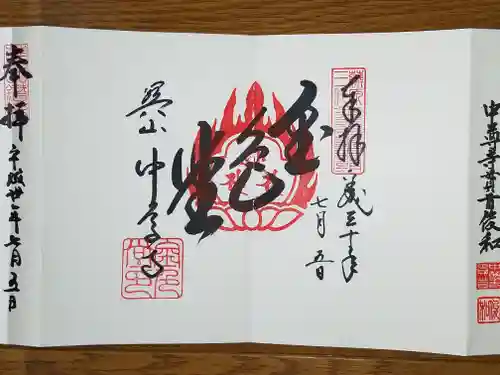 中尊寺
奉拝
平成三十年
七月五日
金色堂
関山
中尊寺
奉拝
平成卅年七月五日